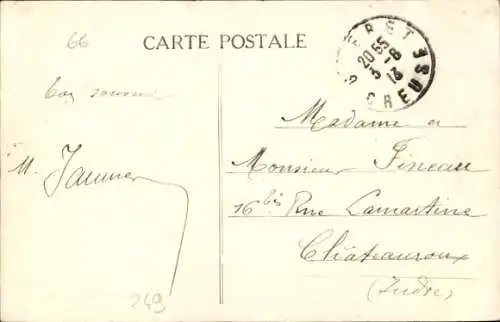 66
CARTE POSTALE
20 55
5-8
13
CREUSE
Bon souvenir
M.
Madame et
Monsieur Fineau
16 bis Rue Lamartine
Châteauroux
(Indre)
249